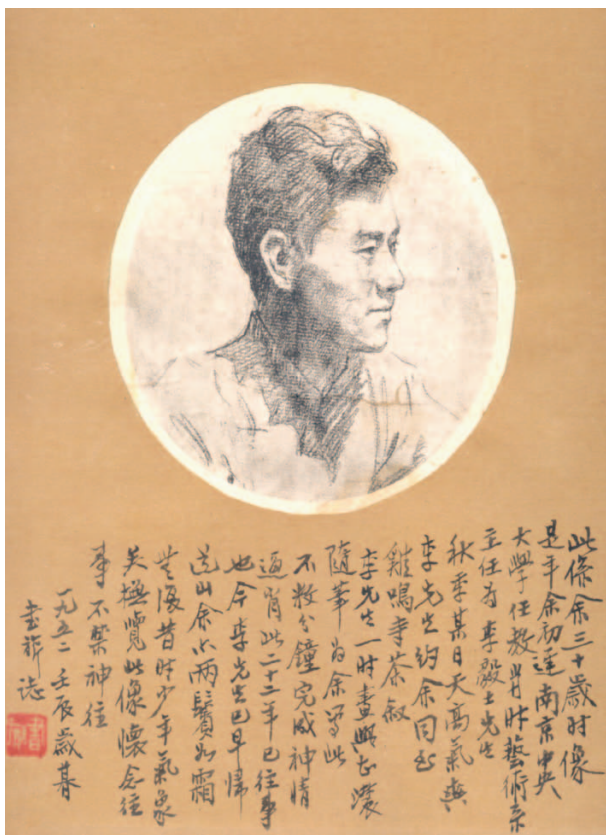 此像余三十歲时像
是年余初達南京中央
大學任教当时藝術系
主任为李毅士先生
秋季某日天高氣爽
李先生约余同至
雞鳴寺茶叙
李先生一时畫興正濃
隨筆为余写此
不数分鐘完成神情
逼肖此二十二年已往事
也今李先生已早歸
道山余亦两鬢如霜
无復昔时少年氣象
矣撫覽此像懷念往
事不禁神往
一九五二壬辰歲暮
書旂誌